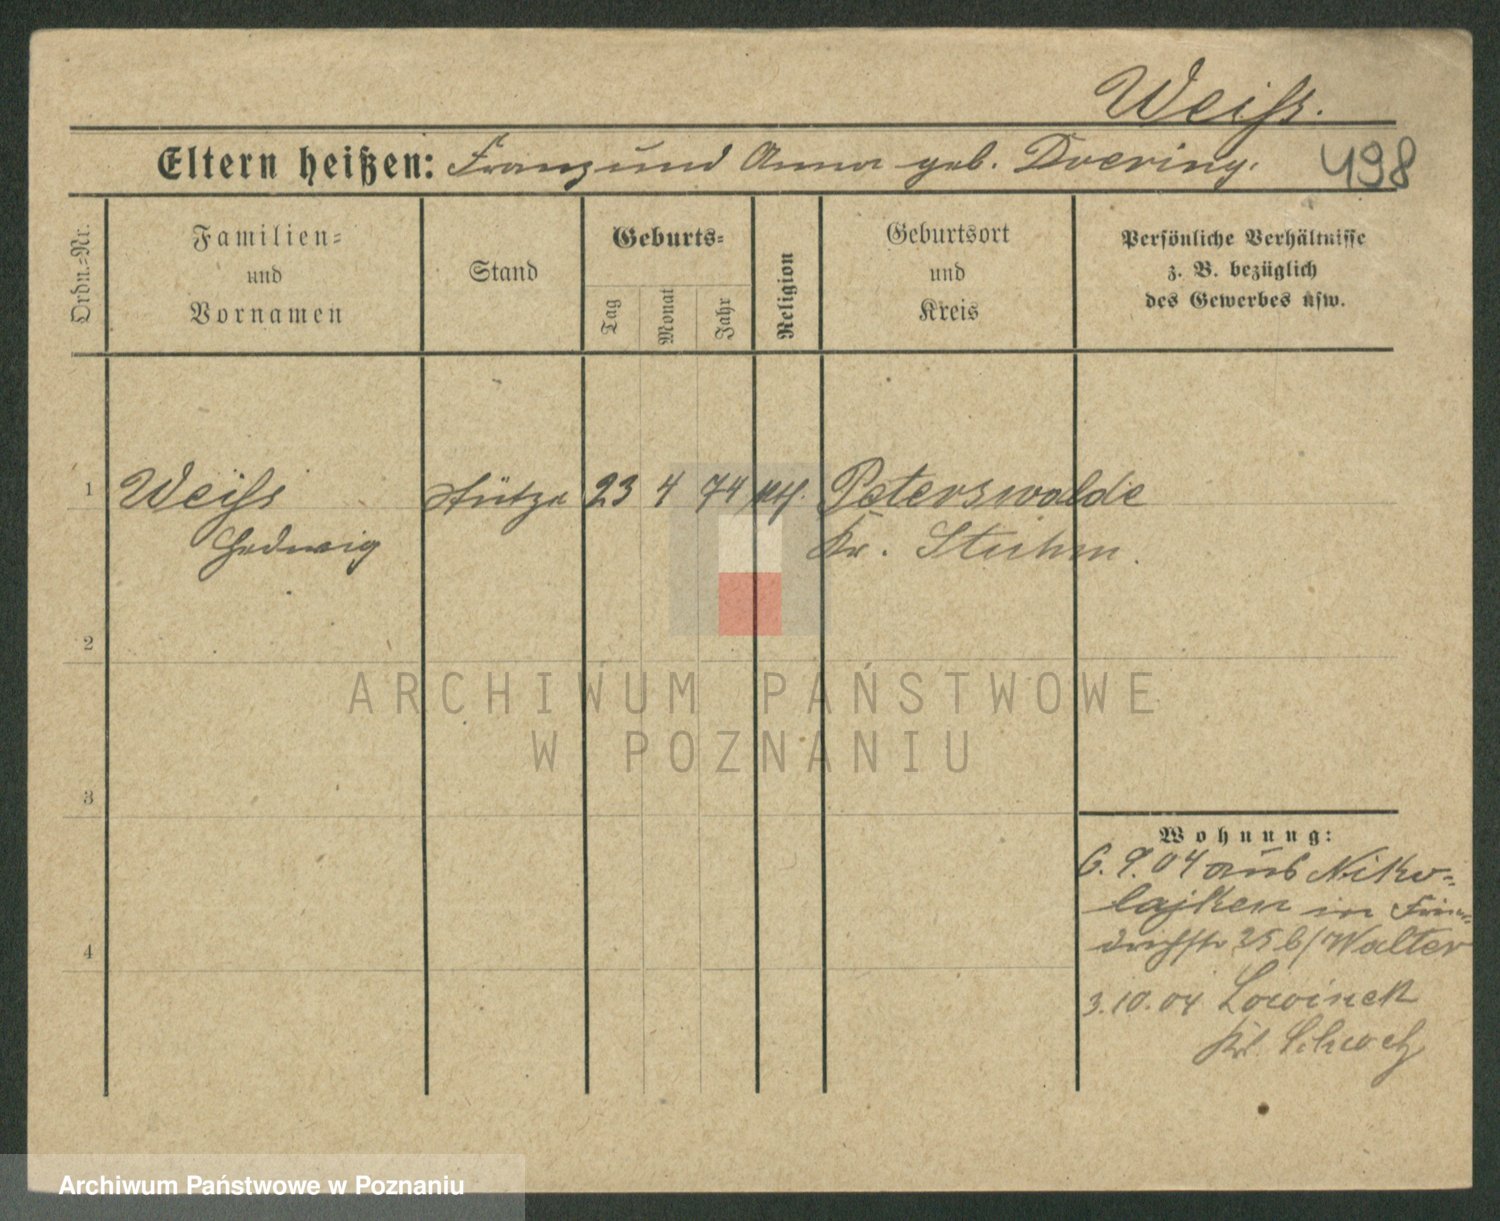 Weiß.
Eltern heißen: Franz und Anna geb. Doering.
498
Ordn.-Nr.
Familien-
und
Vornamen
Stand
Geburts-
Tag
Monat
Jahr
Religion
Geburtsort
und
Kreis
Persönliche Verhältnisse
z. B. bezüglich
des Gewerbes usw.
1 Weiß Stütze 23 4 74 Peterswalde
Hedwig Kr. Stuhm.
2
ARCHIWUM PAŃSTWOWE
W POZNANIU
3
Wohnung:
6.9.04 aus Niko-
laiken in Frie-
drichstr 25 b/Walter
4
3.10.04 Lowinek
Kr. Schwetz
Archiwum Państwowe w Poznaniu